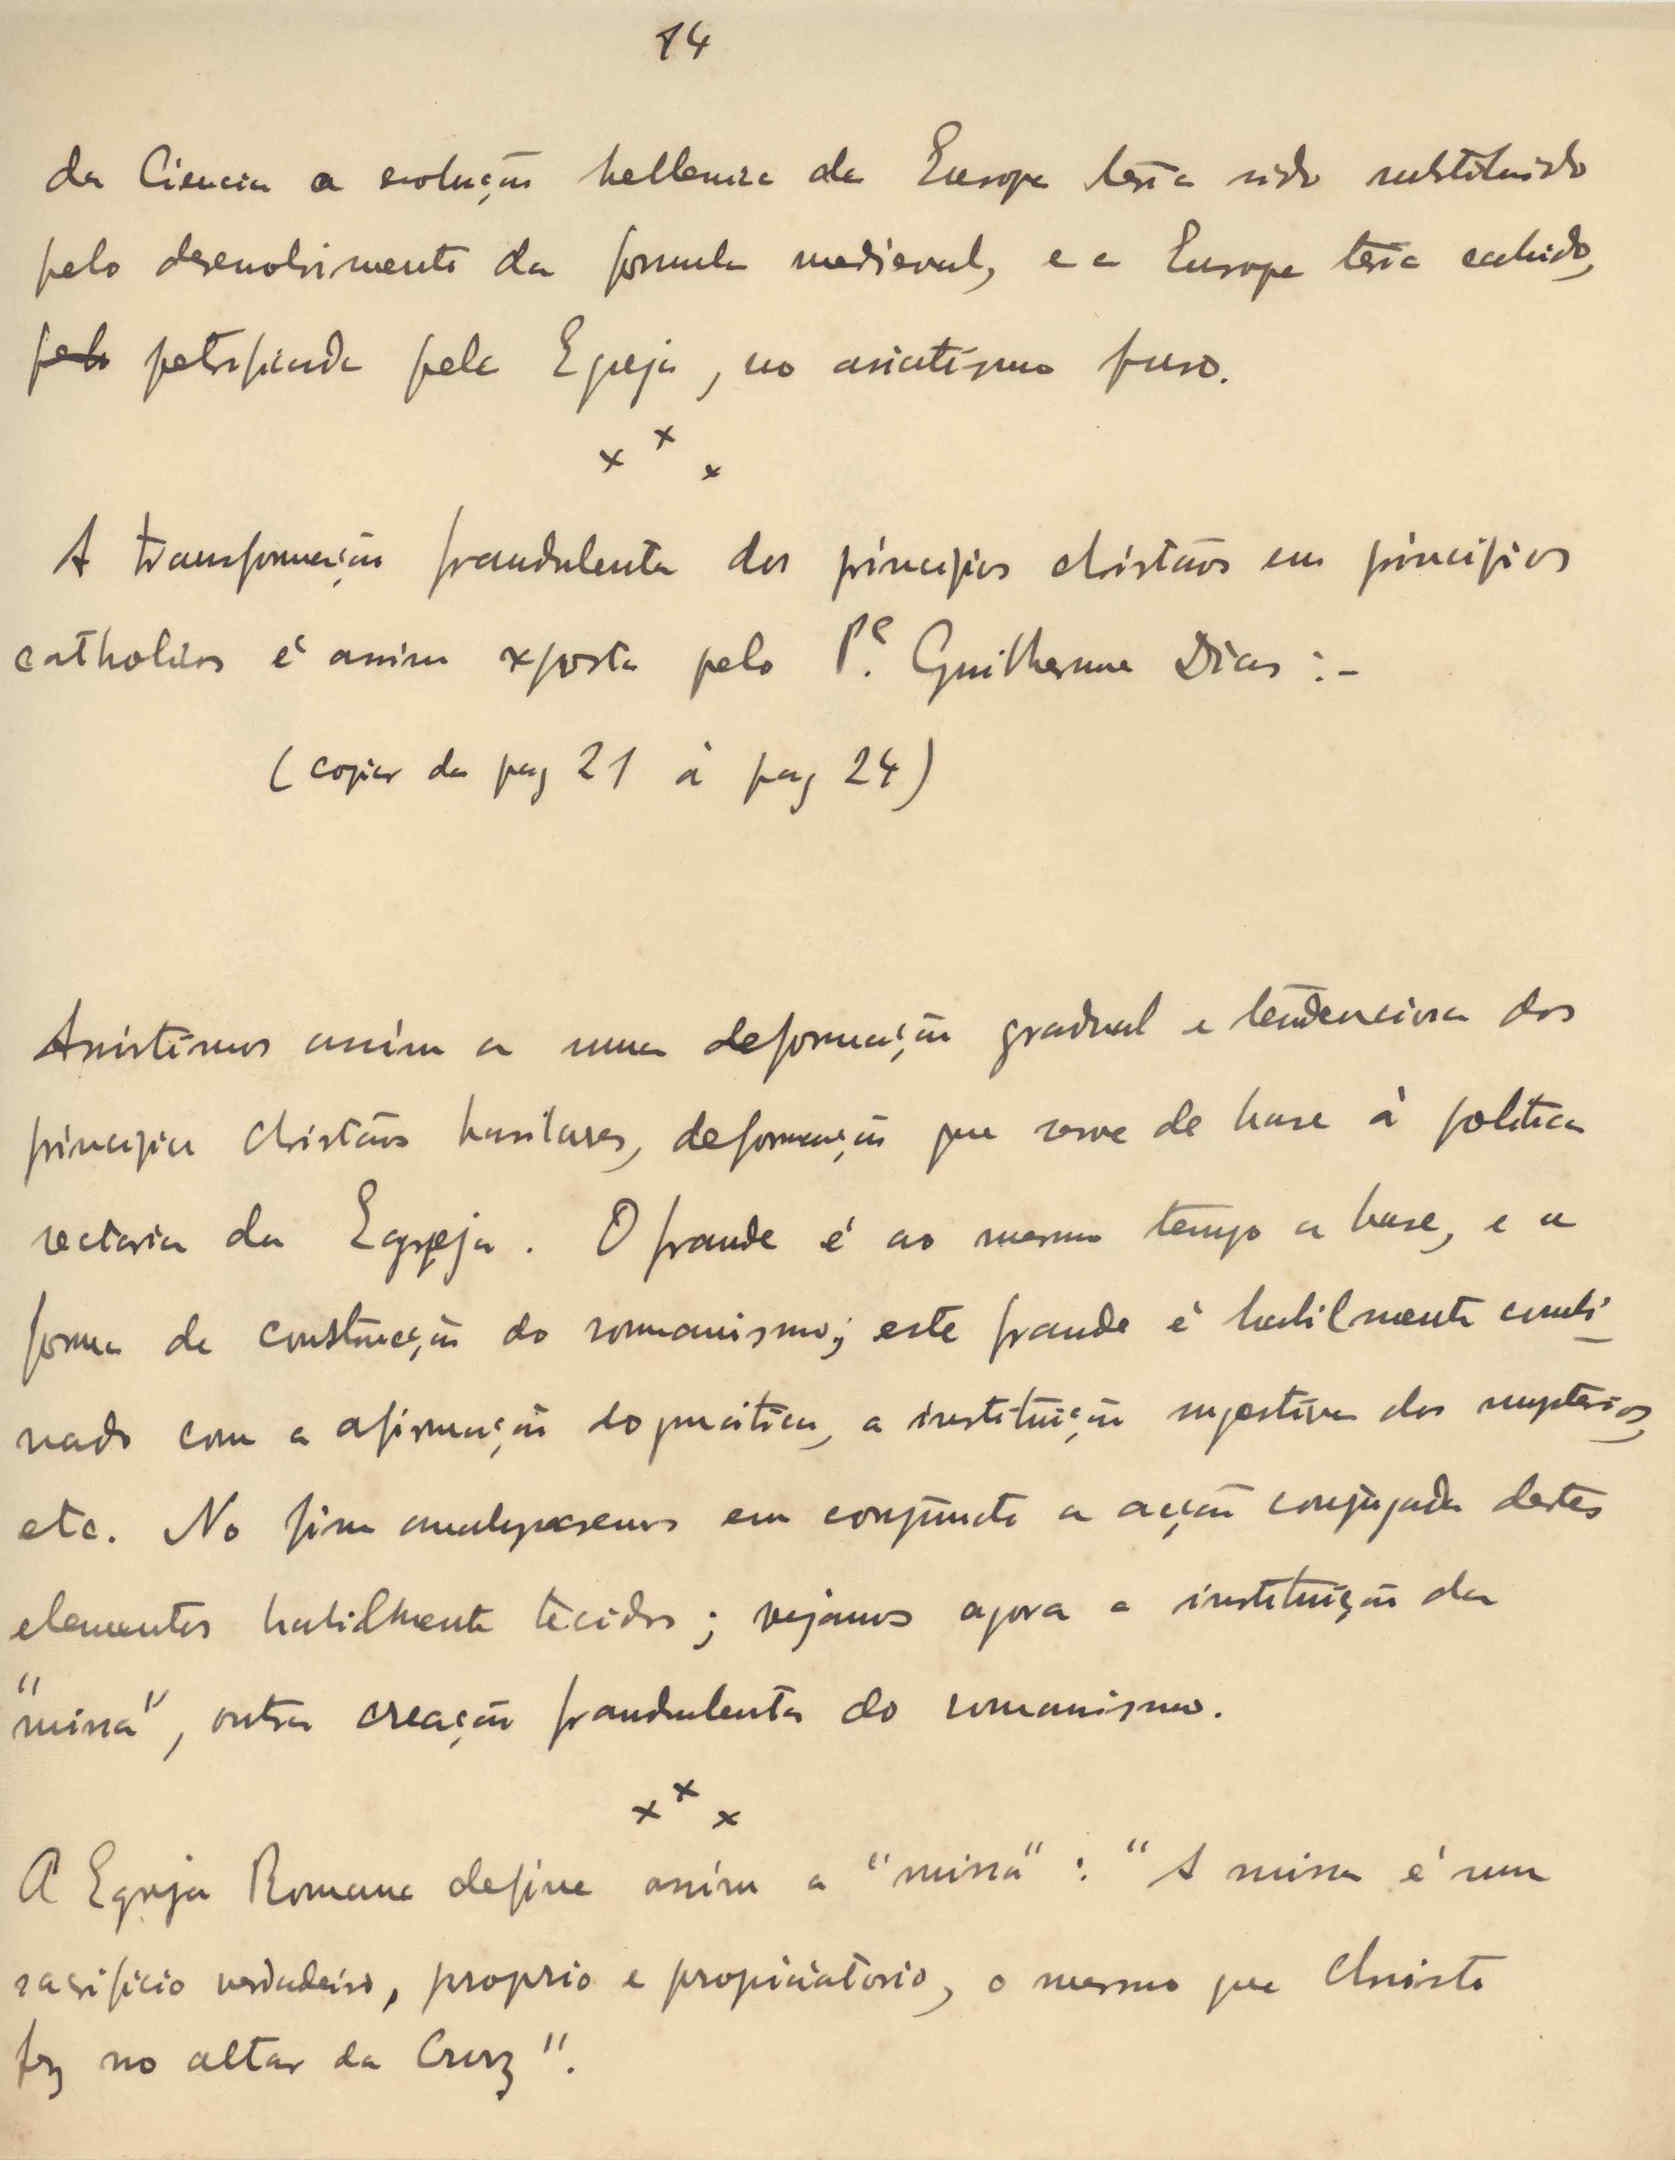 14
da Ciencia a evolução hellenica da Europa teria sido substituido
pelo desenvolvimento da formula medieval, e a Europa teria cahido,
pelo petrificada pela Egreja, no asiatismo puro.
x x x
A transformação fraudulenta dos principios christãos em principios
catholicos é assim exposta pelo P.e Guilherme Dias :-
(copiar da pag 21 à pag 24)
Assistimos assim a uma deformação gradual e tendenciosa dos
principios christãos basilares, deformação que serve de base à politica
sectaria da Egreja. O fraude é ao mesmo tempo a base, e a
forma de construcção do romanismo; este fraude é habilmente combi-
nado com a afirmação dogmatica, a instituição sugestiva dos mysterios,
etc. No fim analysaremos em conjuncto a acção conjugada destes
elementos habilmente tecidos; vejamos agora a instituição da
"missa", outra creação fraudulenta do romanismo.
x x x
A Egreja Romana define assim a "missa" : "A missa é um
sacrificio verdadeiro, proprio e propiciatorio, o mesmo que Christo
fez no altar da Cruz".